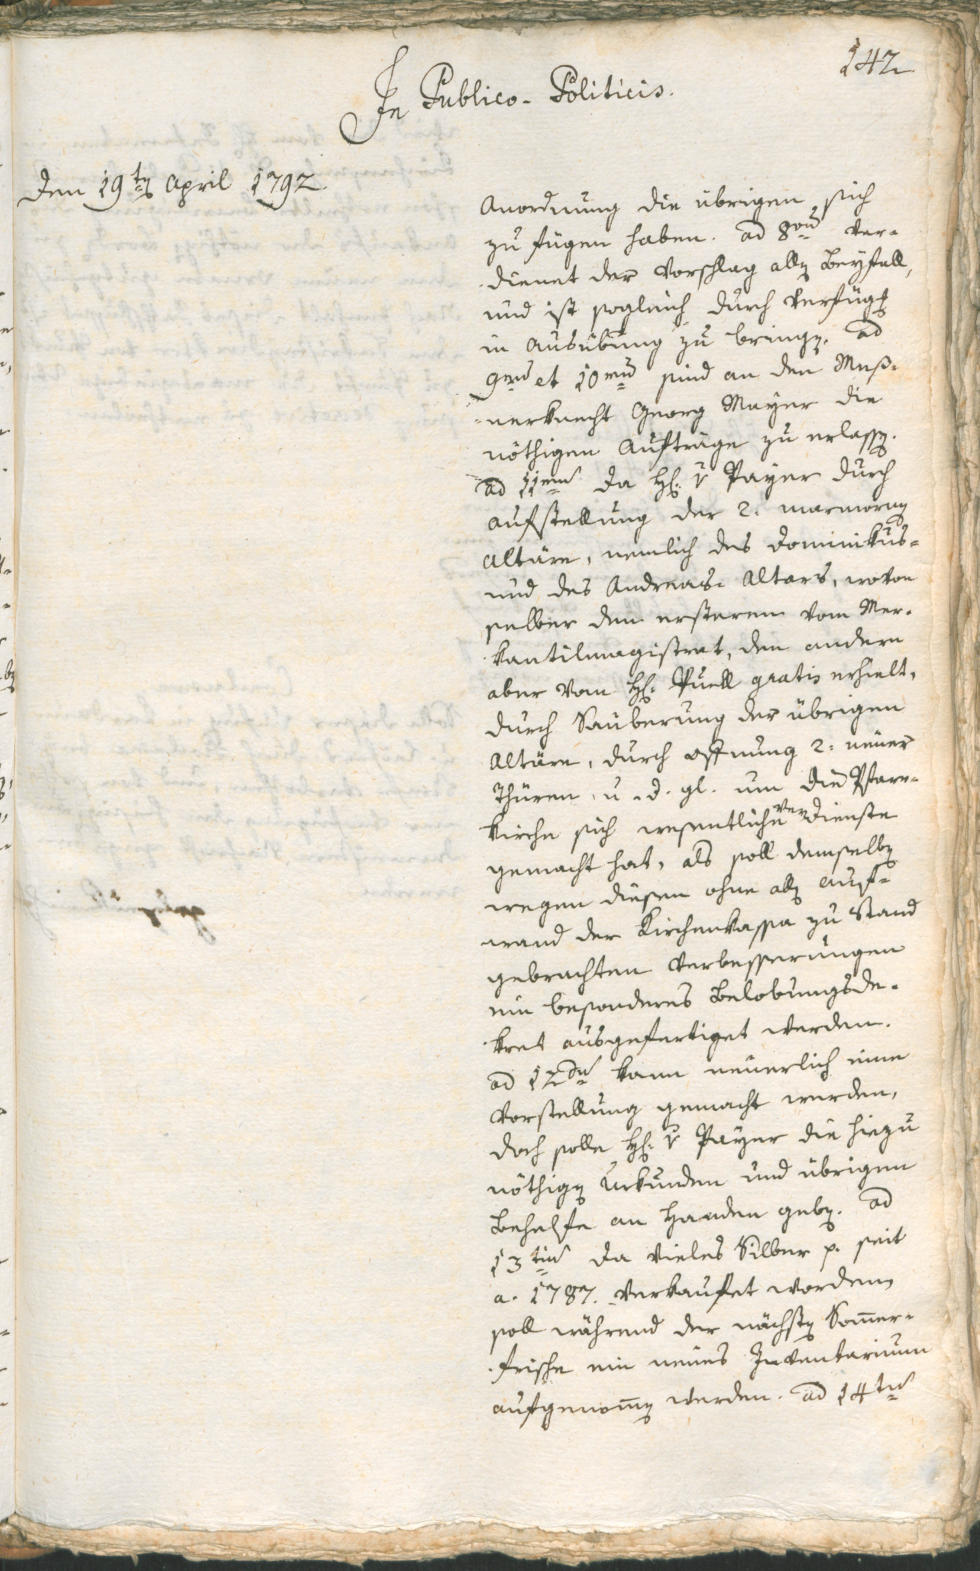 142
In Publico-Politicis.
Den 19ten April 1792
Anordnung die übrigen sich
zu fügen haben. ad 8vum ver-
dienet der Vorschlag allen Beyfall,
und ist sogleich durch Verfügung
in Ausübung zu bringen. ad
9num et 10mum sind an den Meß-
nerknecht Georg Mayer die
nöthigen Aufträge zu erlassen.
ad 11mum Da H: v Payer durch
Aufstellung der 2: marmornen
Altäre, nemlich des Dominikus-
und des Andreas-Altars, wovon
selber den ersteren vom Mer-
kantilmagistrat, den andern
aber vom H: Puell gratis erhielt,
durch Säuberung der übrigen
Altäre, durch Öffnung 2: neuer
Thüren, u. d. gl. um die Pfarr-
kirche sich wesentliche Verdienste
gemacht hat, als soll demselben
wegen diesen ohne allen Auf-
wand der Kirchenkassa zu Stand
gebrachten Verbesserungen
ein besonderes Belobungsde-
kret ausgefertiget werden.
ad 12dum kann neuerlich eine
Vorstellung gemacht werden,
doch solle H: v Payer die hiezu
nöthigen Urkunden und übrigen
Behelfe an Handen geben. ad
13tium Da vieles Silber p. seit
a. 1787. verkaufet worden,
soll während der nächsten Sommer-
frische ein neues Inventarium
aufgenommen werden. ad 14tum